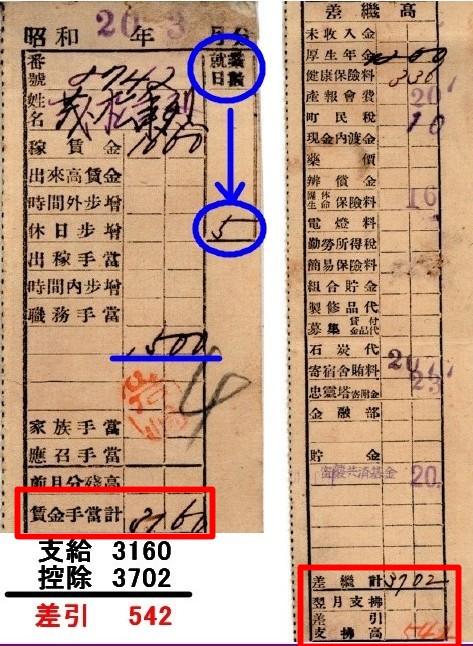 昭和 20 年 3 月分
番號 2742
就業日數
姓名
稼賃金
出來高賃金
時間外歩增
休日歩增 5
出稼手當
時間內歩增
職務手當
1500
家族手當
應召手當
前月分殘高
賃金手當計 3160
支給 3160
控除 3702
差引 542
差繼高
未收入金
厚生年金
健康保險料 330
產報會費 20
町民稅 10
現金內渡金
藥價
辨償金
團体生命保險料 16
電燈料
勤勞所得稅
簡易保險料
組合貯金
製修品代
募集貸付金品代
石炭代
寄宿舍賄料
忠靈塔寄附金 23
金融部
貯金
共濟基金 20
差繼計 3702
翌月支拂
差引支拂高 542